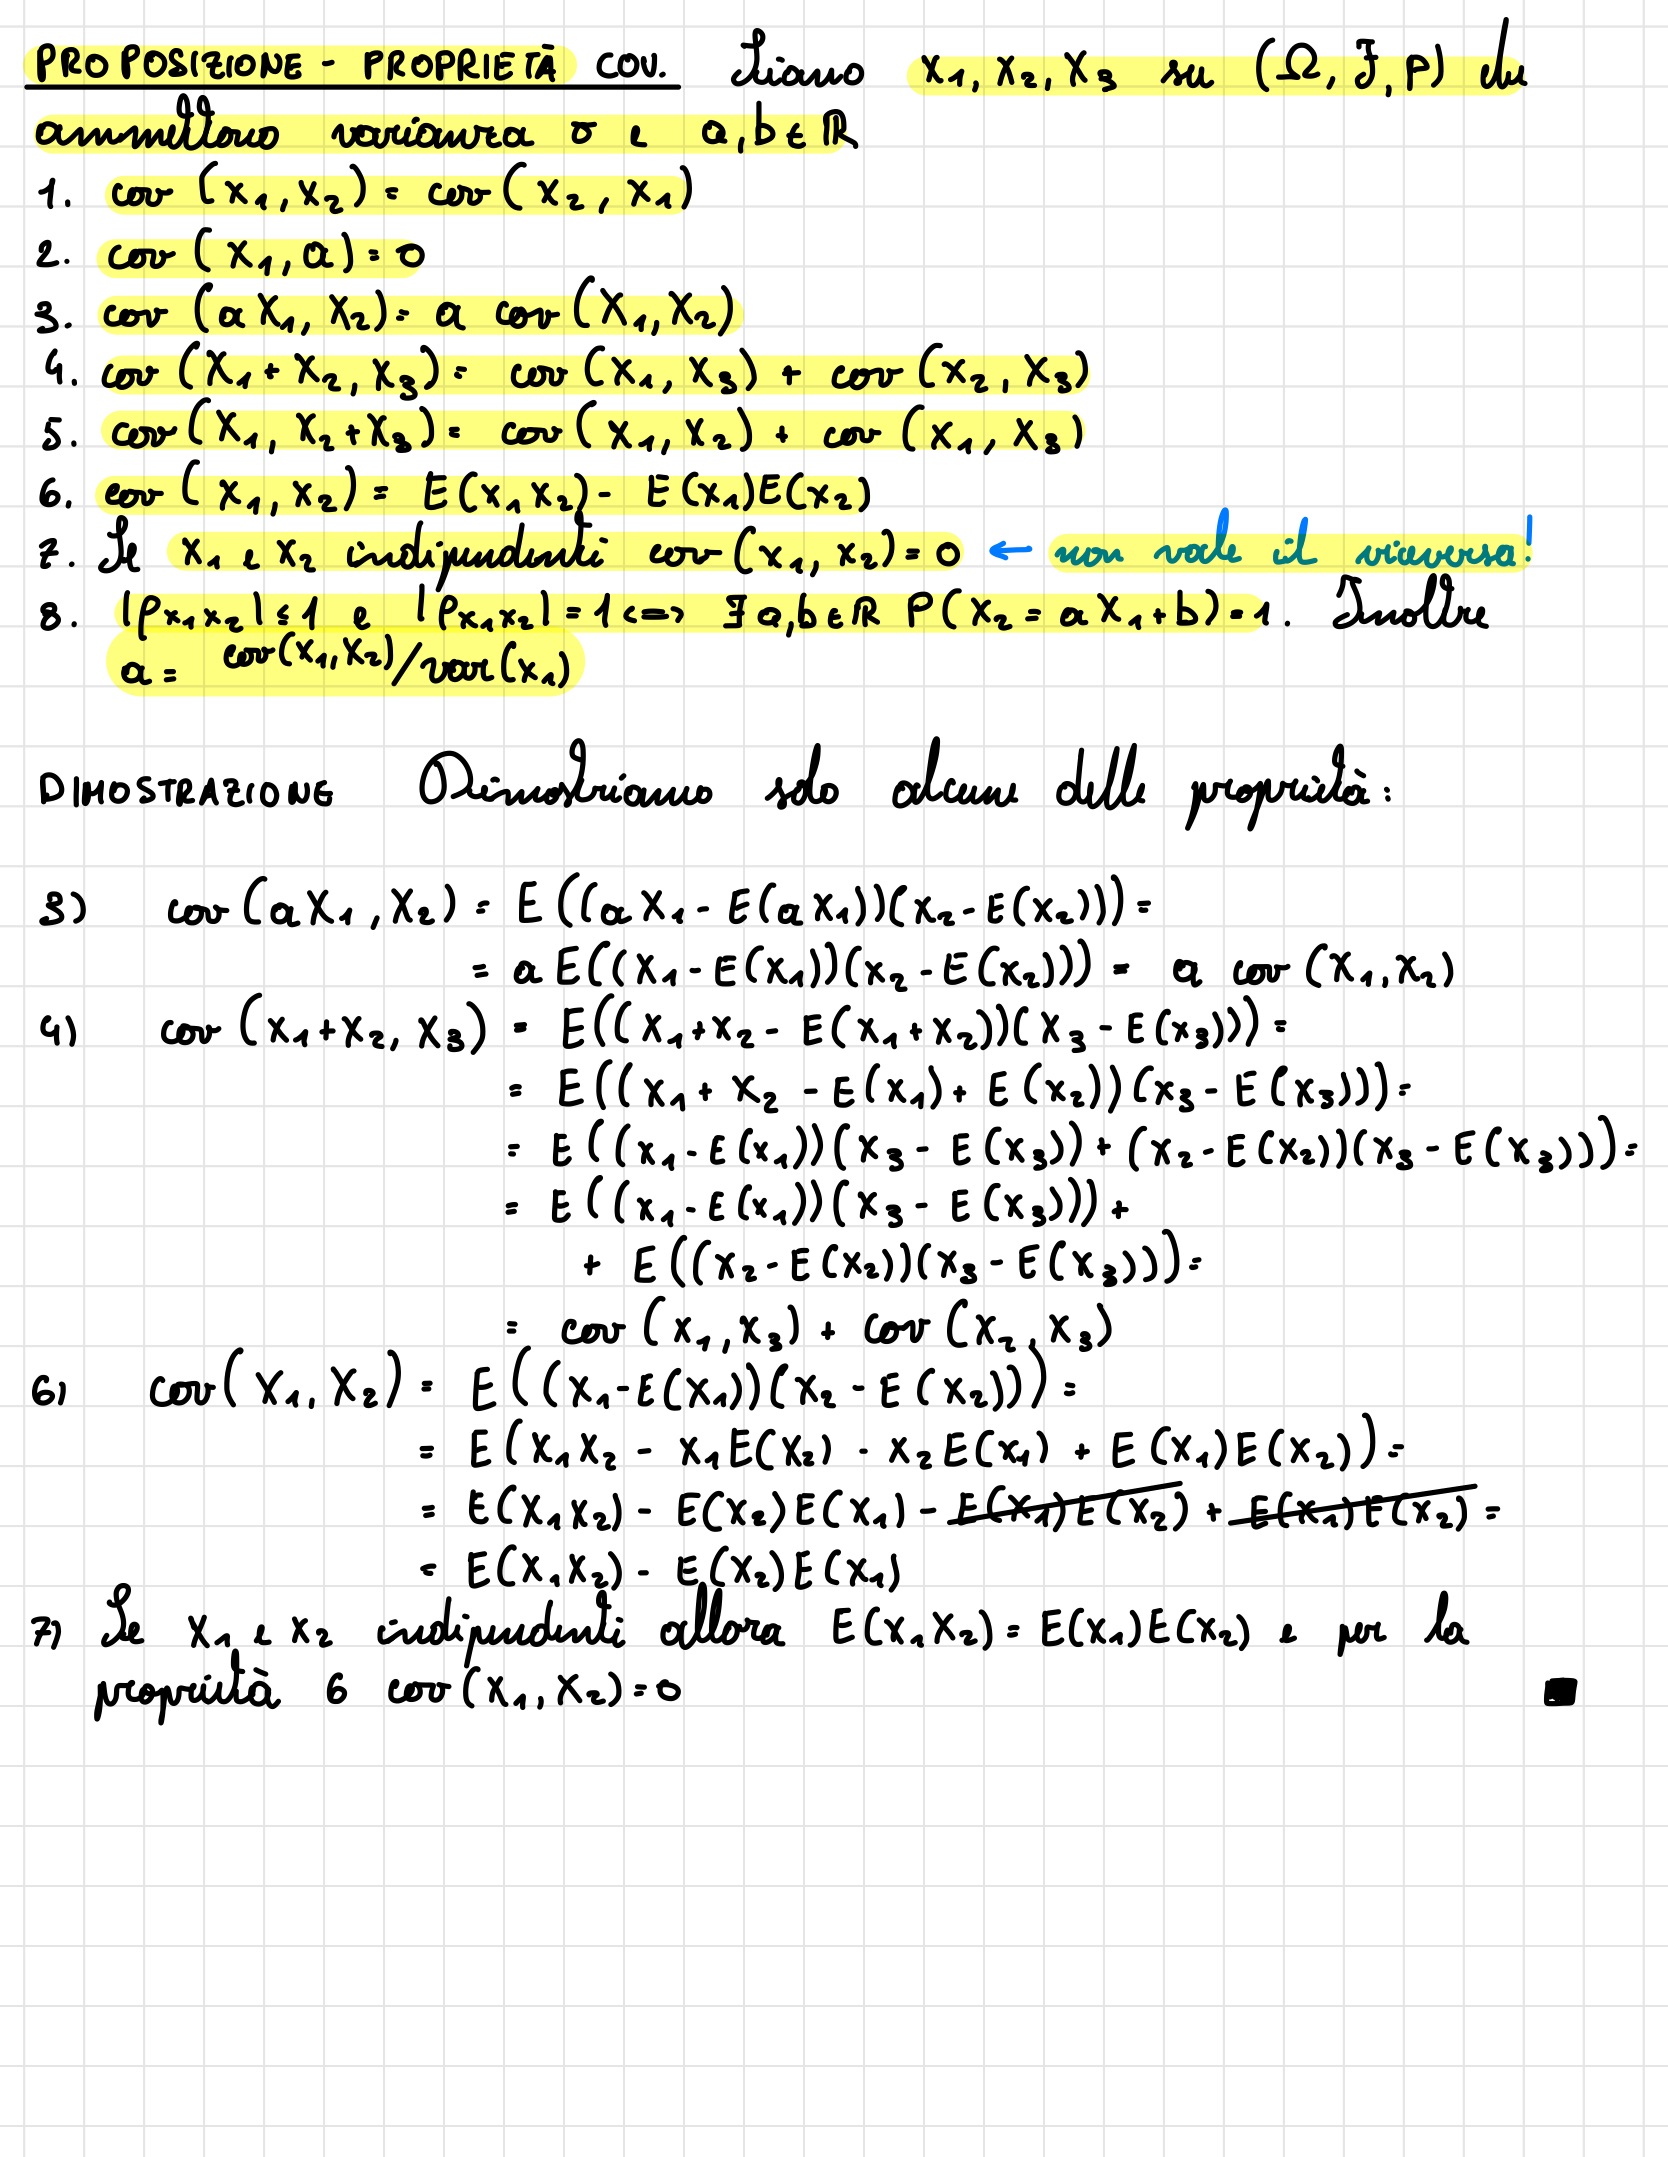 PROPOSIZIONE - PROPRIETÀ COV. Siano X1, X2, X3 su (Ω, F, P) che
ammettono varianza σ e a, b ∈ ℝ
1. cov (X1, X2) = cov (X2, X1)
2. cov (X1, a) = 0
3. cov (a X1, X2) = a cov (X1, X2)
4. cov (X1 + X2, X3) = cov (X1, X3) + cov (X2, X3)
5. cov (X1, X2 + X3) = cov (X1, X2) + cov (X1, X3)
6. cov (X1, X2) = E(X1 X2) - E(X1)E(X2)
7. Se X1 e X2 indipendenti cov (X1, X2) = 0 ← non vale il viceversa!
8. |ρX1X2| ≤ 1 e |ρX1X2| = 1 <=> ∃ a,b ∈ ℝ P(X2 = a X1 + b) = 1. Inoltre
a = cov(X1, X2)/var(X1)
DIMOSTRAZIONE Dimostriamo solo alcune delle proprietà:
3) cov (a X1, X2) = E((a X1 - E(a X1))(X2 - E(X2))) =
= a E((X1 - E(X1))(X2 - E(X2))) = a cov (X1, X2)
4) cov (X1 + X2, X3) = E((X1 + X2 - E(X1 + X2))(X3 - E(X3))) =
= E((X1 + X2 - E(X1) + E(X2))(X3 - E(X3))) =
= E((X1 - E(X1))(X3 - E(X3)) + (X2 - E(X2))(X3 - E(X3))) =
= E((X1 - E(X1))(X3 - E(X3))) +
+ E((X2 - E(X2))(X3 - E(X3))) =
= cov (X1, X3) + cov (X2, X3)
6) cov (X1, X2) = E((X1 - E(X1))(X2 - E(X2))) =
= E(X1 X2 - X1 E(X2) - X2 E(X1) + E(X1)E(X2)) =
= E(X1 X2) - E(X2)E(X1) - E(X1)E(X2) + E(X1)E(X2) =
= E(X1 X2) - E(X2)E(X1)
7) Se X1 e X2 indipendenti allora E(X1 X2) = E(X1)E(X2) e per la
proprietà 6 cov (X1, X2) = 0 ■